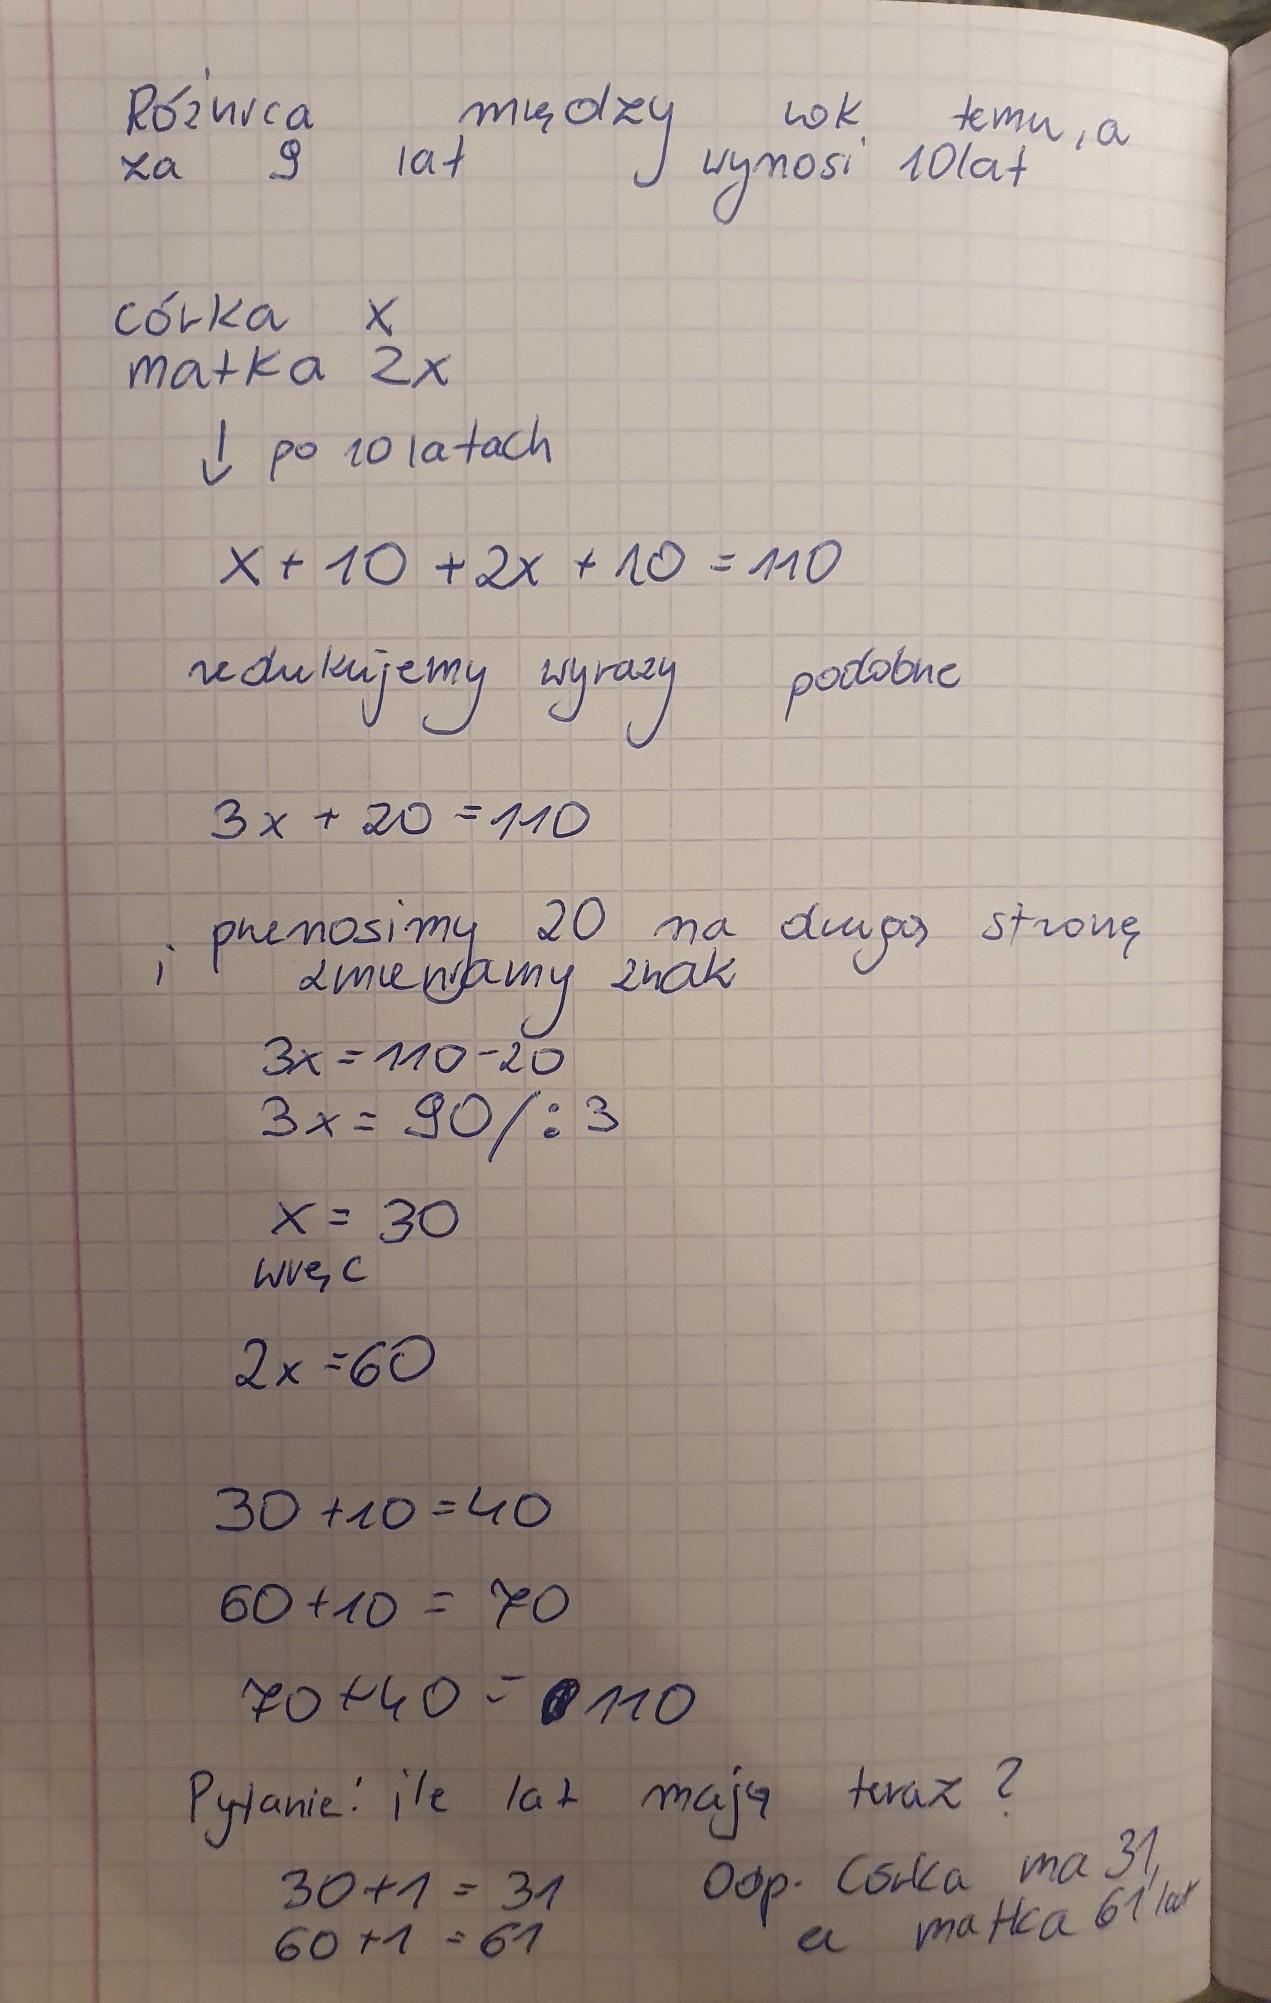 Różnica między rok temu, a
za 9 lat wynosi 10 lat
córka x
matka 2x
↓ po 10 latach
x + 10 + 2x + 10 = 110
redukujemy wyrazy podobne
3x + 20 = 110
przenosimy 20 na drugą stronę
i zmieniamy znak
3x = 110 - 20
3x = 90 / : 3
x = 30
więc
2x = 60
30 + 10 = 40
60 + 10 = 70
70 + 40 = 110
Pytanie: ile lat mają teraz?
30 + 1 = 31
60 + 1 = 61
Odp. Córka ma 31,
a matka 61 lat